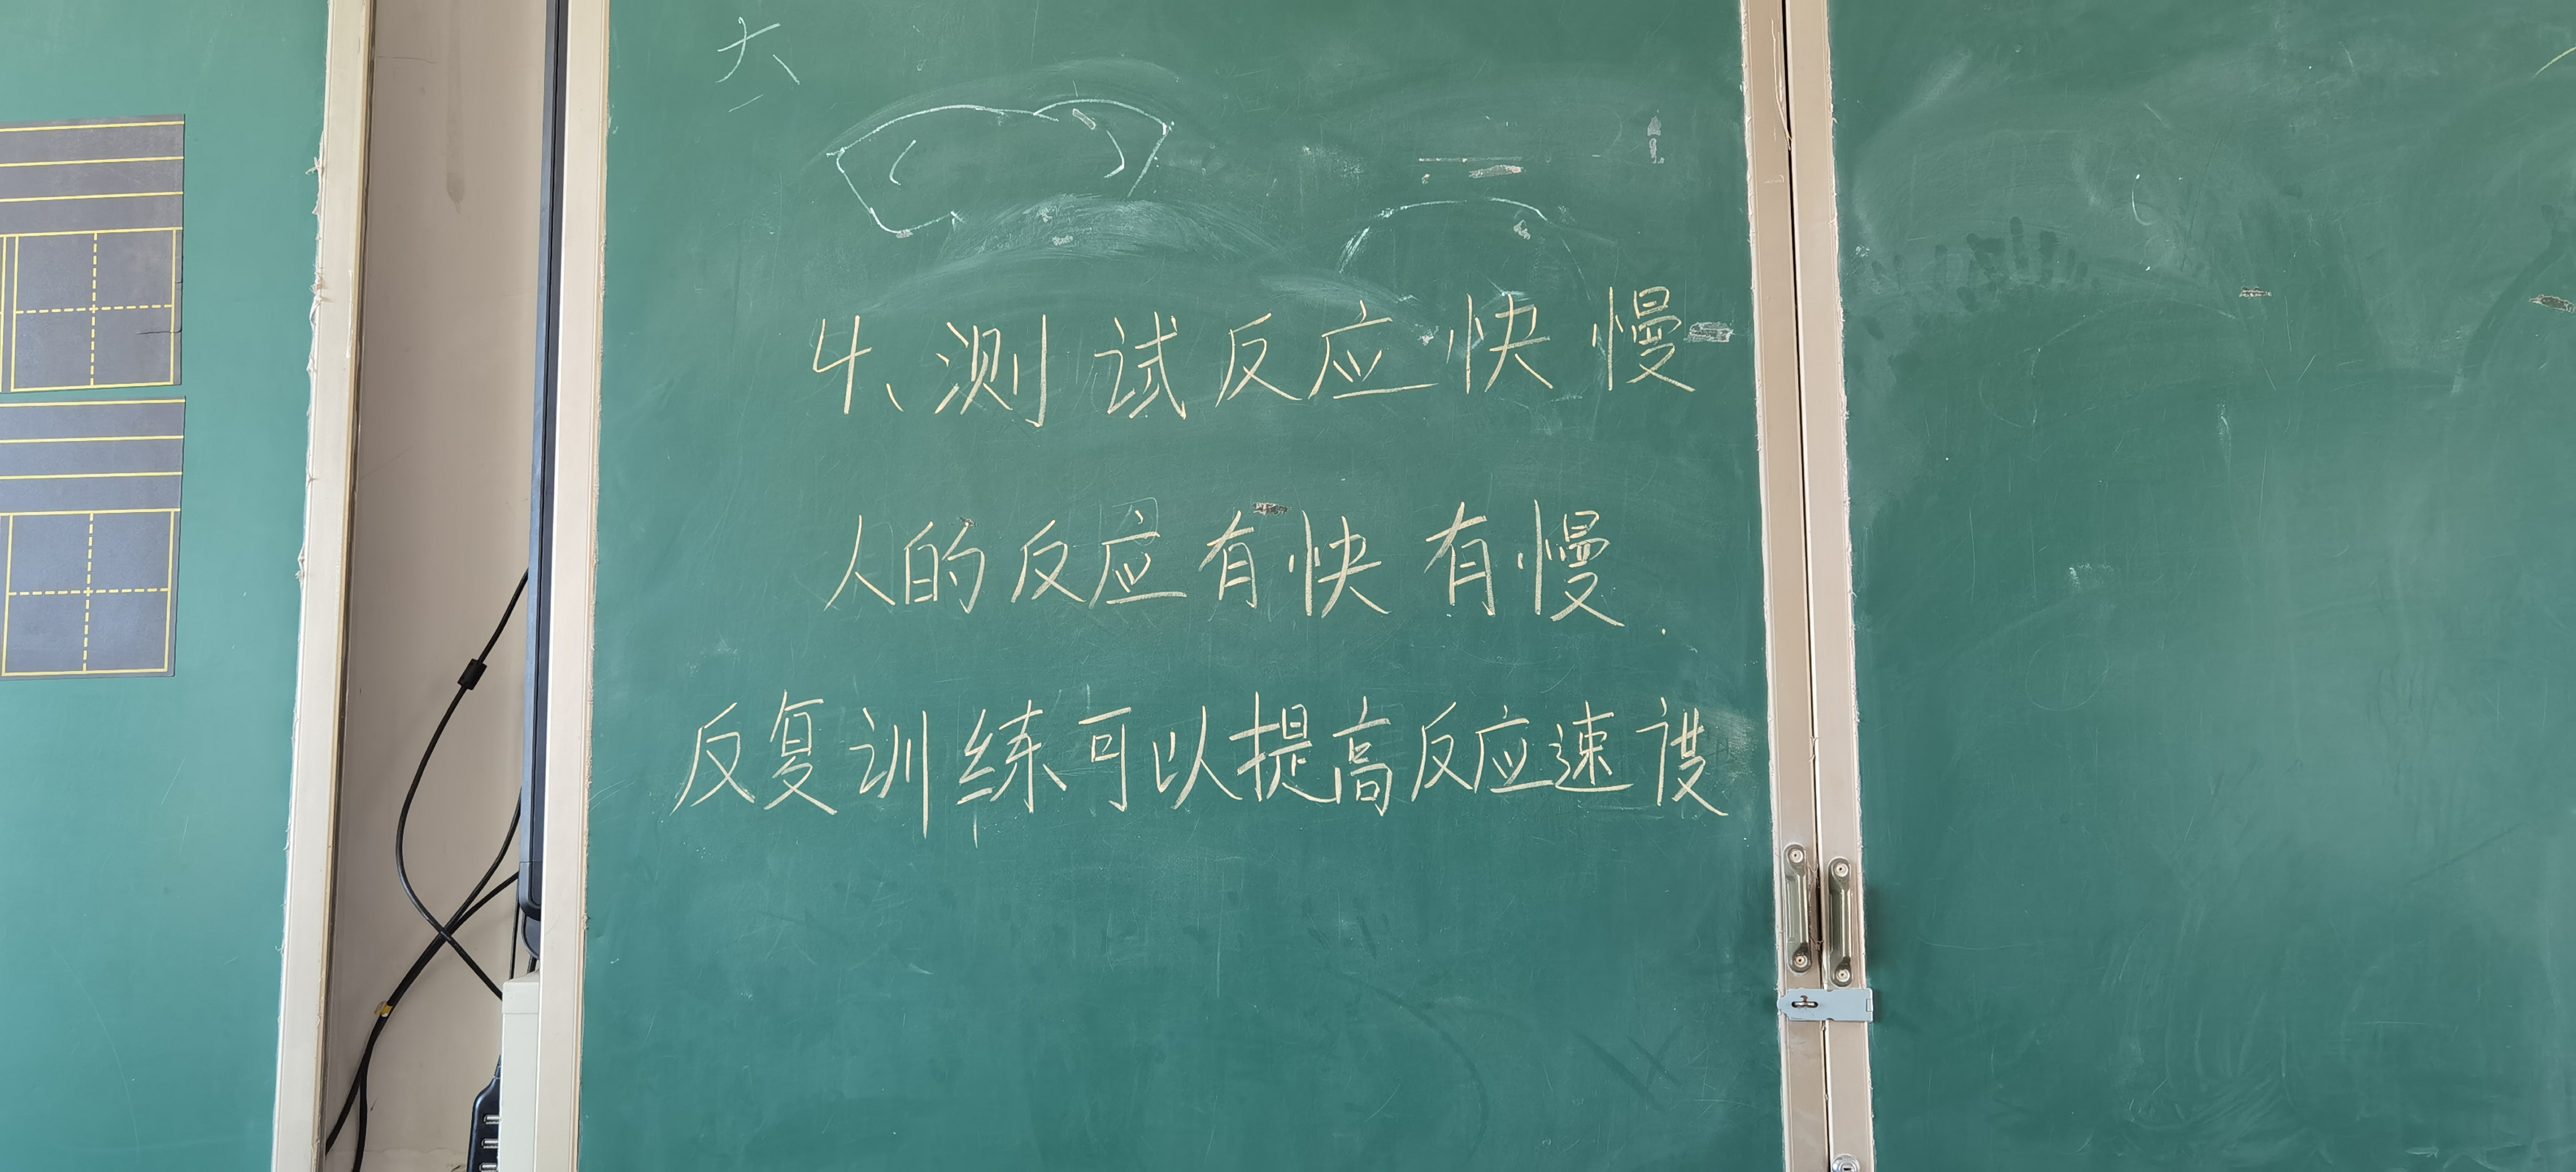 大
4、测试反应快慢
人的反应有快有慢.
反复训练可以提高反应速度